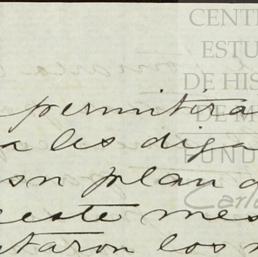 CENT
ESTU
DE HIS
DE M
FUND
Carl
permitira
a les diga
son plan
este mes
taron los